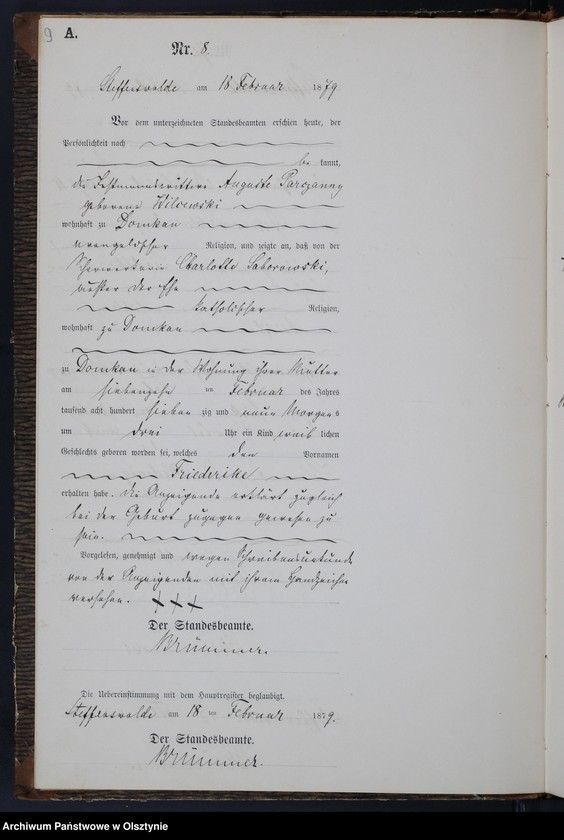 9 A.
Nr. 8.
Steffenswalde am 18 Februar 1879
Vor dem unterzeichneten Standesbeamten erschien heute, der
Persönlichkeit nach
be kannt,
die Auguste Parczanny
geborene Wilewski
wohnhaft zu Domkau
evangelischer Religion, und zeigte an, daß von der
Charlotte Saborowski,
außer der Ehe
katholischer Religion,
wohnhaft zu Domkau
zu Domkau in der Wohnung ihrer Mutter
am siebenzehn ten Februar des Jahres
tausend acht hundert sieben zig und neun Morgens
um drei Uhr ein Kind weib lichen
Geschlechts geboren worden sei, welches den Vornamen
Friederike
erhalten habe. Die Anzeigende erklärt zugleich
bei der Geburt zugegen gewesen zu
sein.
Vorgelesen, genehmigt und wegen Schreibensunkunde
von der Anzeigenden mit ihrem Handzeichen
versehen. + + +
Der Standesbeamte.
Brümmer.
Die Uebereinstimmung mit dem Hauptregister beglaubigt.
Steffenswalde am 18 ten Februar 1879.
Der Standesbeamte.
Brümmer.
Archiwum Państwowe w Olsztynie